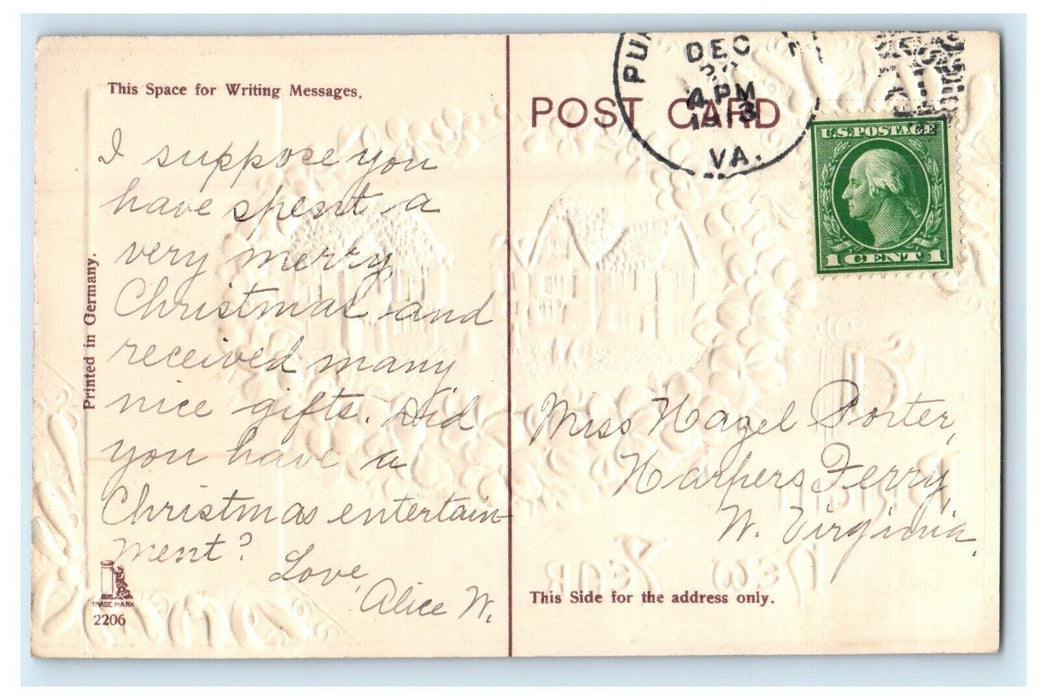 This Space for Writing Messages.
I suppose you
have spent a
very merry
Christmas and
received many
nice gifts. Did
you have a
Christmas entertain-
ment? Love,
Alice W.
Printed in Germany.
TRADE MARK
2206
DEC
4 PM
1913
VA.
POST CARD
U.S. POSTAGE
1 CENT 1
Miss Hazel Porter,
Harpers Ferry,
W. Virginia.
This Side for the address only.
New Year